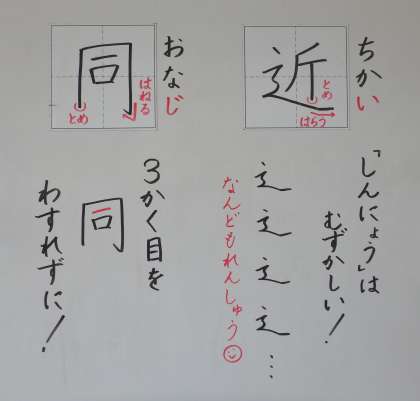 ちかい
近
とめ
はらう
「しんにょう」は
むずかしい!
辶 辶 辶 辶 …
なんどもれんしゅう
おなじ
同
はねる
とめ
3かく目を
同
わすれずに!